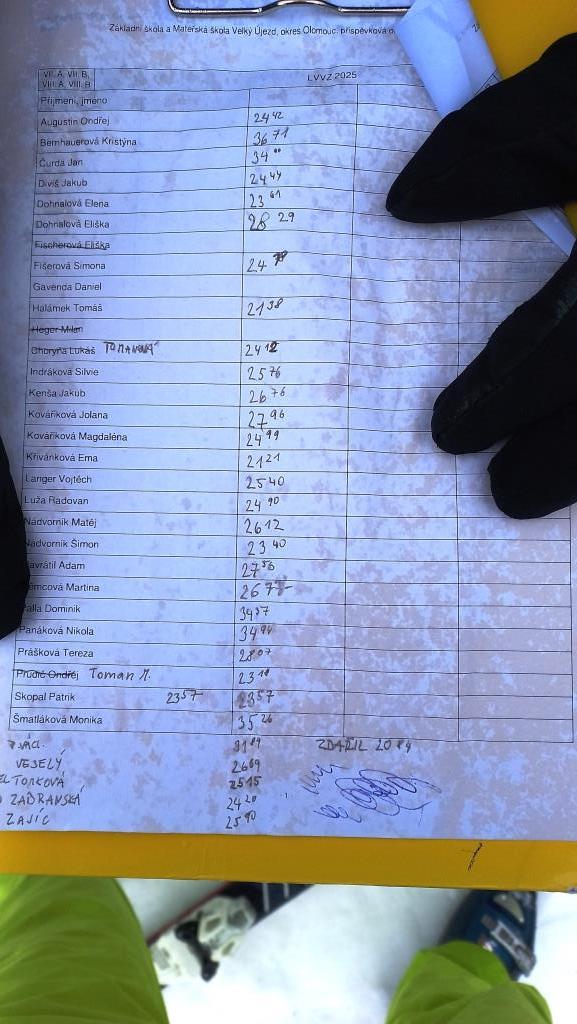 Základní škola a Mateřská škola Velký Újezd, okres Olomouc, příspěvková
VII. A, VII. B, LVVZ 2025
VIII. A, VIII. B
Příjmení, jméno
Augustin Ondřej 24 42
Bernhauerová Kristýna 36 71
Čurda Jan 34
Diviš Jakub 24 44
Dohnalová Elena 23 61
Dohnalová Eliška 28 29
Fischerová Eliška
Fišerová Simona 24
Gavenda Daniel
Halámek Tomáš 21 38
Heger Milan
Choryňa Lukáš TOMANOVÁ 24 12
Indráková Silvie 25 76
Kenša Jakub 26 76
Kovaříková Jolana 27 96
Kovaříková Magdaléna 24 99
Křivánková Ema 21 21
Langer Vojtěch 25 40
Luža Radovan 24 90
Nádvorník Matěj 26 12
Nádvorník Šimon 23 40
avrátil Adam 27 56
ěmcová Martina 26
alla Dominik 34 57
Panáková Nikola 34 94
Prášková Tereza 28 07
Prudič Ondřej Toman M. 23 18
Skopal Patrik 23 57 23 57
Šmatláková Monika 35 26
31 89 ZDAŘIL 20 84
VESELÝ 26 69
TORKOVÁ 25 15
ZABRANSKÁ 24 20
ZAJÍC 25 90